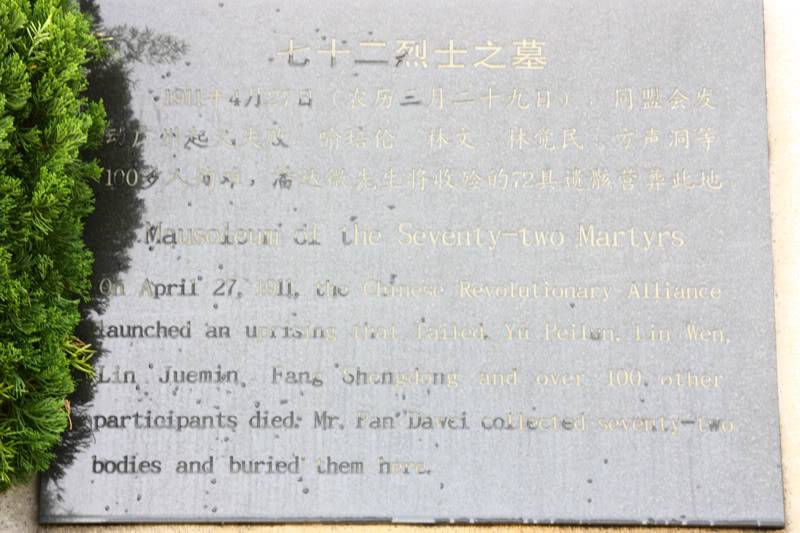 七十二烈士之墓
1911年4月27日（农历三月二十九日），同盟会发
动广州起义失败，喻培伦、林文、林觉民、方声洞等
100多人殉难，潘达微先生将收殓的72具遗骸营葬此地
Mausoleum of the Seventy-two Martyrs
On April 27, 1911, the Chinese Revolutionary Alliance
launched an uprising that failed. Yu Peilun, Lin Wen,
Lin Juemin, Fang Shengdong and over 100 other
participants died. Mr. Pan Dawei collected seventy-two
bodies and buried them here.